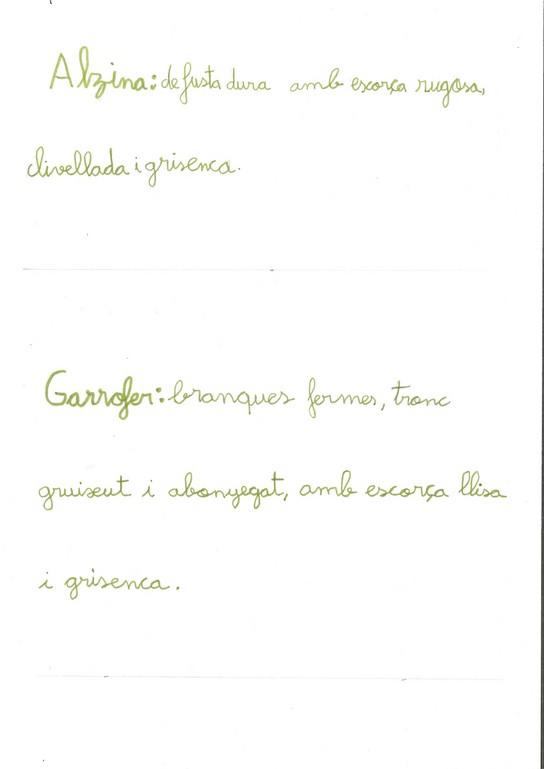 Alzina: de fusta dura amb escorça rugosa,
clivellada i grisenca.
Garrofer: branques fermes, tronc
gruixut i abonyegat, amb escorça llisa
i grisenca.